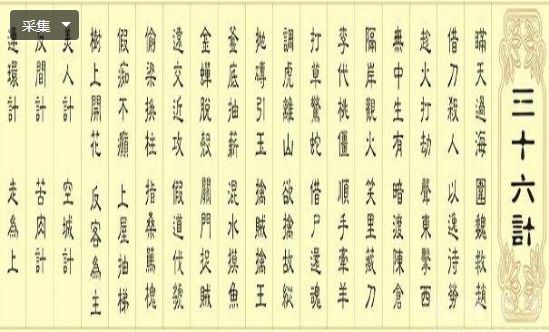 采集
三十六計
瞞天過海 圍魏救趙
借刀殺人 以逸待勞
趁火打劫 聲東擊西
無中生有 暗渡陳倉
隔岸觀火 笑里藏刀
李代桃僵 順手牽羊
打草驚蛇 借尸還魂
調虎離山 欲擒故縱
拋磚引玉 擒賊擒王
釜底抽薪 混水摸魚
金蟬脫殼 關門捉賊
遠交近攻 假道伐虢
偷梁換柱 指桑罵槐
假痴不癲 上屋抽梯
樹上開花 反客為主
美人計 空城計
反間計 苦肉計
連環計 走為上